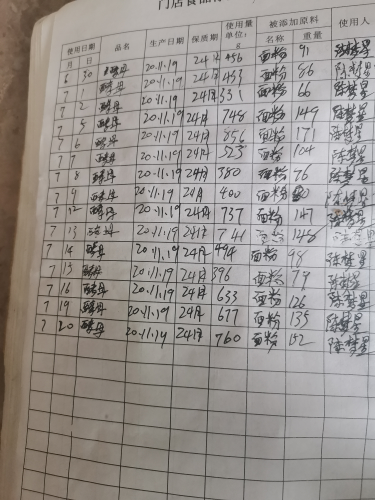 门店食品
使用日期 品名 生产日期 保质期 使用量 单位: g 被添加原料 使用人
月 日 名称 重量
6 30 酵母 20.11.19 24月 456 面粉 91
7 1 酵母 20.11.19 24月 433 面粉 86
7 2 酵母 20.11.19 24月 331 面粉 66
7 5 酵母 20.11.19 24月 748 面粉 149
7 6 酵母 20.11.19 24月 856 面粉 171
7 7 酵母 20.11.19 24月 523 面粉 104
7 8 酵母 20.11.19 24月 380 面粉 76
7 9 酵母 20.11.19 24月 400 面粉 80
7 12 酵母 20.11.19 24月 737 面粉 147
7 13 酵母 20.11.19 24月 741 面粉 148
7 14 酵母 20.11.19 24月 494 面粉 98
7 15 酵母 20.11.19 24月 396 面粉 79
7 16 酵母 20.11.19 24月 633 面粉 126
7 19 酵母 20.11.19 24月 677 面粉 135
7 20 酵母 20.11.19 24月 760 面粉 152